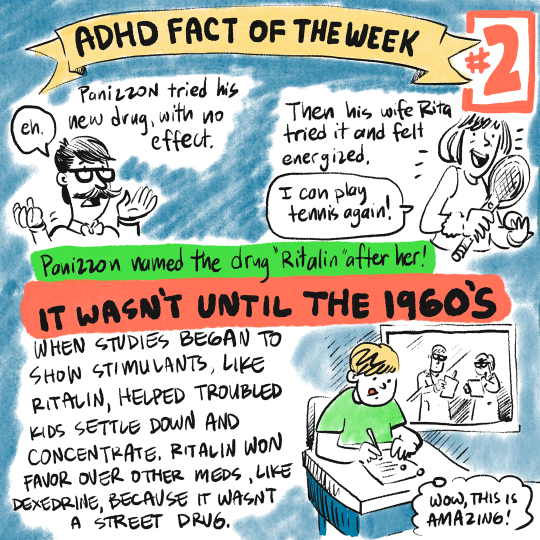 ADHD FACT OF THE WEEK
#2
Panizzon tried his
new drug, with no
effect.
eh.
Then his wife Rita
tried it and felt
energized.
I can play
tennis again!
Panizzon named the drug "Ritalin" after her!
IT WASN'T UNTIL THE 1960'S
WHEN STUDIES BEGAN TO
SHOW STIMULANTS, LIKE
RITALIN, HELPED TROUBLED
KIDS SETTLE DOWN AND
CONCENTRATE. RITALIN WON
FAVOR OVER OTHER MEDS, LIKE
DEXEDRINE, BECAUSE IT WASN'T
A STREET DRUG.
WOW, THIS IS
AMAZING!